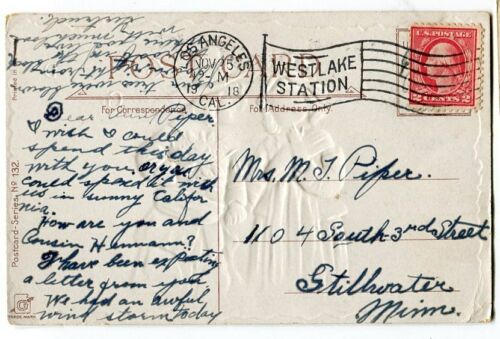 LOS ANGELES
NOV 15
12-M
1918
CAL.
WESTLAKE
STATION
U.S. POSTAGE
2 CENTS 2
POST CARD
For Correspondence
For Address Only.
Printed in
Postcard-Series No 132.
TRADE MARK
Dear Piper.
I wish I could
spend this day
with you, or you
could spend it with
us in sunny Califor
nia.
How are you and
Cousin Hermann?
I have been expecting
a letter from you
We had an awful
wind storm today
with much love
Mrs. M. T. Piper.
1104 South-3rd Street
Stillwater
Minn.